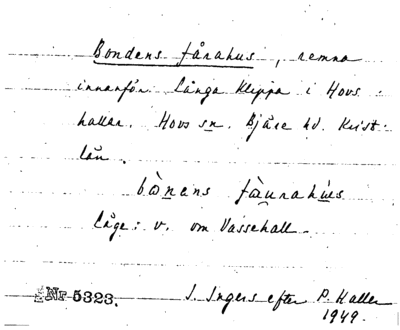 Bondens fårahus, remna
innanför Långa Klippa i Hovs
hallar. Hovs sn. Bjäre hd. Krist.
län.
bònens fàurahùs
Läge: v. om Vassehall.
Nr 5323. I. Ingers efter P. Haller
1949.